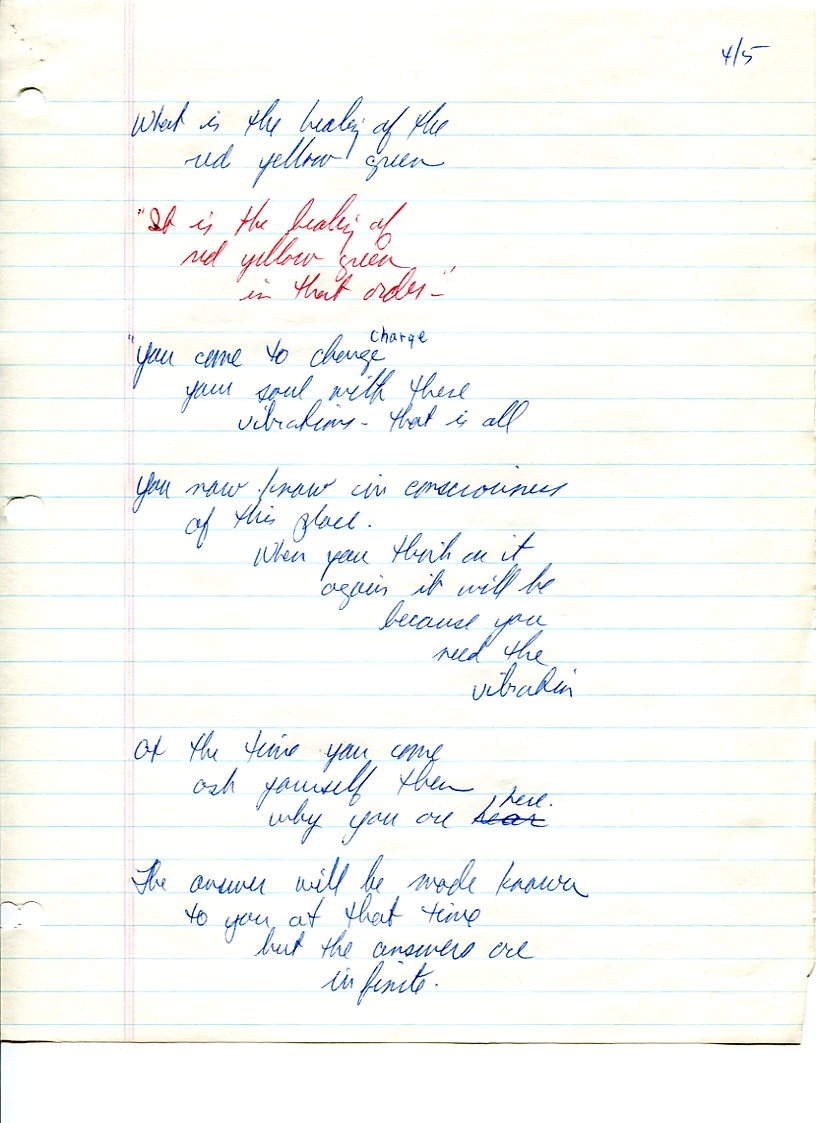 4/5
What is the healing of the
red yellow green
"It is the healing of
red yellow green
in that order -"
charge
"you come to change
your soul with these
vibrations - that is all
you now know in consciousness
of this place.
When you think on it
again it will be
because you
need the
vibration
At the time you come
ask yourself then
here.
why you are hear
The answer will be made known
to you at that time
but the answers are
infinite.